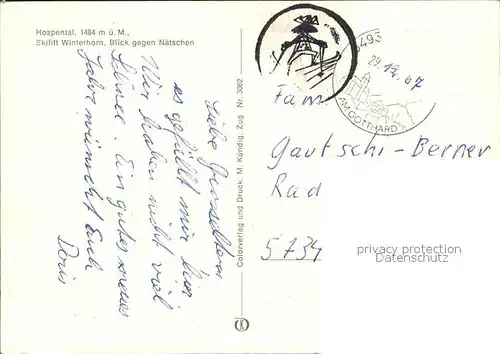 Hospental, 1484 m ü. M.,
Skilift Winterhorn, Blick gegen Nätschen
Liebe Grosseltern
es gefällt mir hier
Wir haben nicht viel
Schnee. Ein gutes neues
Jahr wünscht Euch
Doris
Colorverlag und Druck M. Kündig, Zug Nr. 3062
6493
29.12.67
AM GOTTHARD
Fam
Gautschi-Berner
Rad
5734
privacy protection
Datenschutz